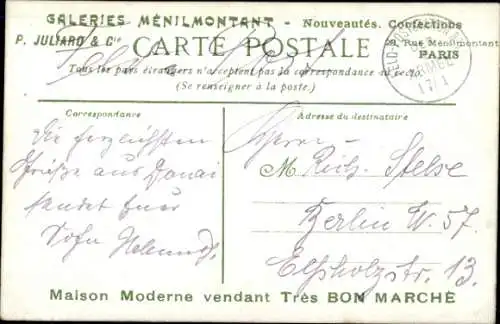 GALERIES MÉNILMONTANT - Nouveautés. Confections
P. JULIARD & Cie CARTE POSTALE 9, Rue Ménilmontant
PARIS
Feld Post
Tous les pays étrangers n'acceptent pas la correspondance au recto.
(Se renseigner à la poste.)
Correspondance
Die herzlichsten
Grüße aus Douai
sendet Euer
Sohn Helmuth.
Adresse du destinataire
Herrn
M Rich. Stelse
Berlin W. 57
Elßholzstr. 13.
Maison Moderne vendant Très BON MARCHÉ